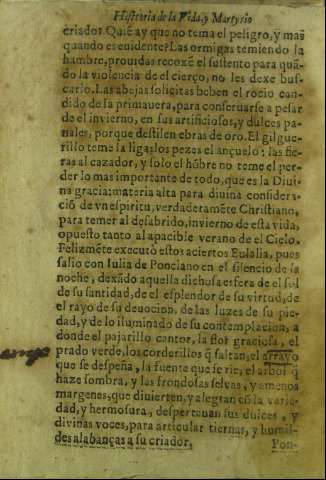 Historia de la Vida, y Martyrio
criados? Quiē ay que no tema el peligro, y mas
quando es euidente? Las ormigas temiendo la
hambre, prouidas recoxē el sustento para quā-
do la violencia de el cierço, no les dexe bus-
carlo. Las abejas solicitas beben el rocio can-
dido de la primauera, para conseruarse a pesar
de el invierno, en sus artificiosos, y dulces pa-
nales, porque destilen ebras de oro. El gilgue-
rillo teme la liga; los pezes el ançuelo: las fie-
ras al cazador, y solo el hōbre no teme el per-
der lo mas importante de todo, que es la Divi-
na gracia: materia alta para divina consideraci
ciō de vn espiritu, verdaderamēte Christiano,
para temer al desabrido, invierno de esta vida,
opuesto tanto al apacible verano de el Cielo.
Felizmēte executò estos aciertos Eulalia, pues
salio con Iulia de Ponciano en el silencio de la
noche, dexādo aquella dichosa esfera de el sol
de su santidad, de el esplendor de su virtud, de
el rayo de su deuocion, de las luzes de su pie-
dad, y de lo iluminado de su contemplacion, a
donde el pajarillo cantor, la flor graciosa, el
prado verde, los corderillos q̄ saltan, el arrayo
que se despeña, la fuente que se rie, el arbol q̄
haze sombra, y las frondosas selvas, y amenos
margenes, que diuierten, y alegran cō la varie-
dad, y hermosura, despertauan sus dulces, y
divinas voces, para articular tiernas, y humil-
des alabanças a su criador.
Pon-